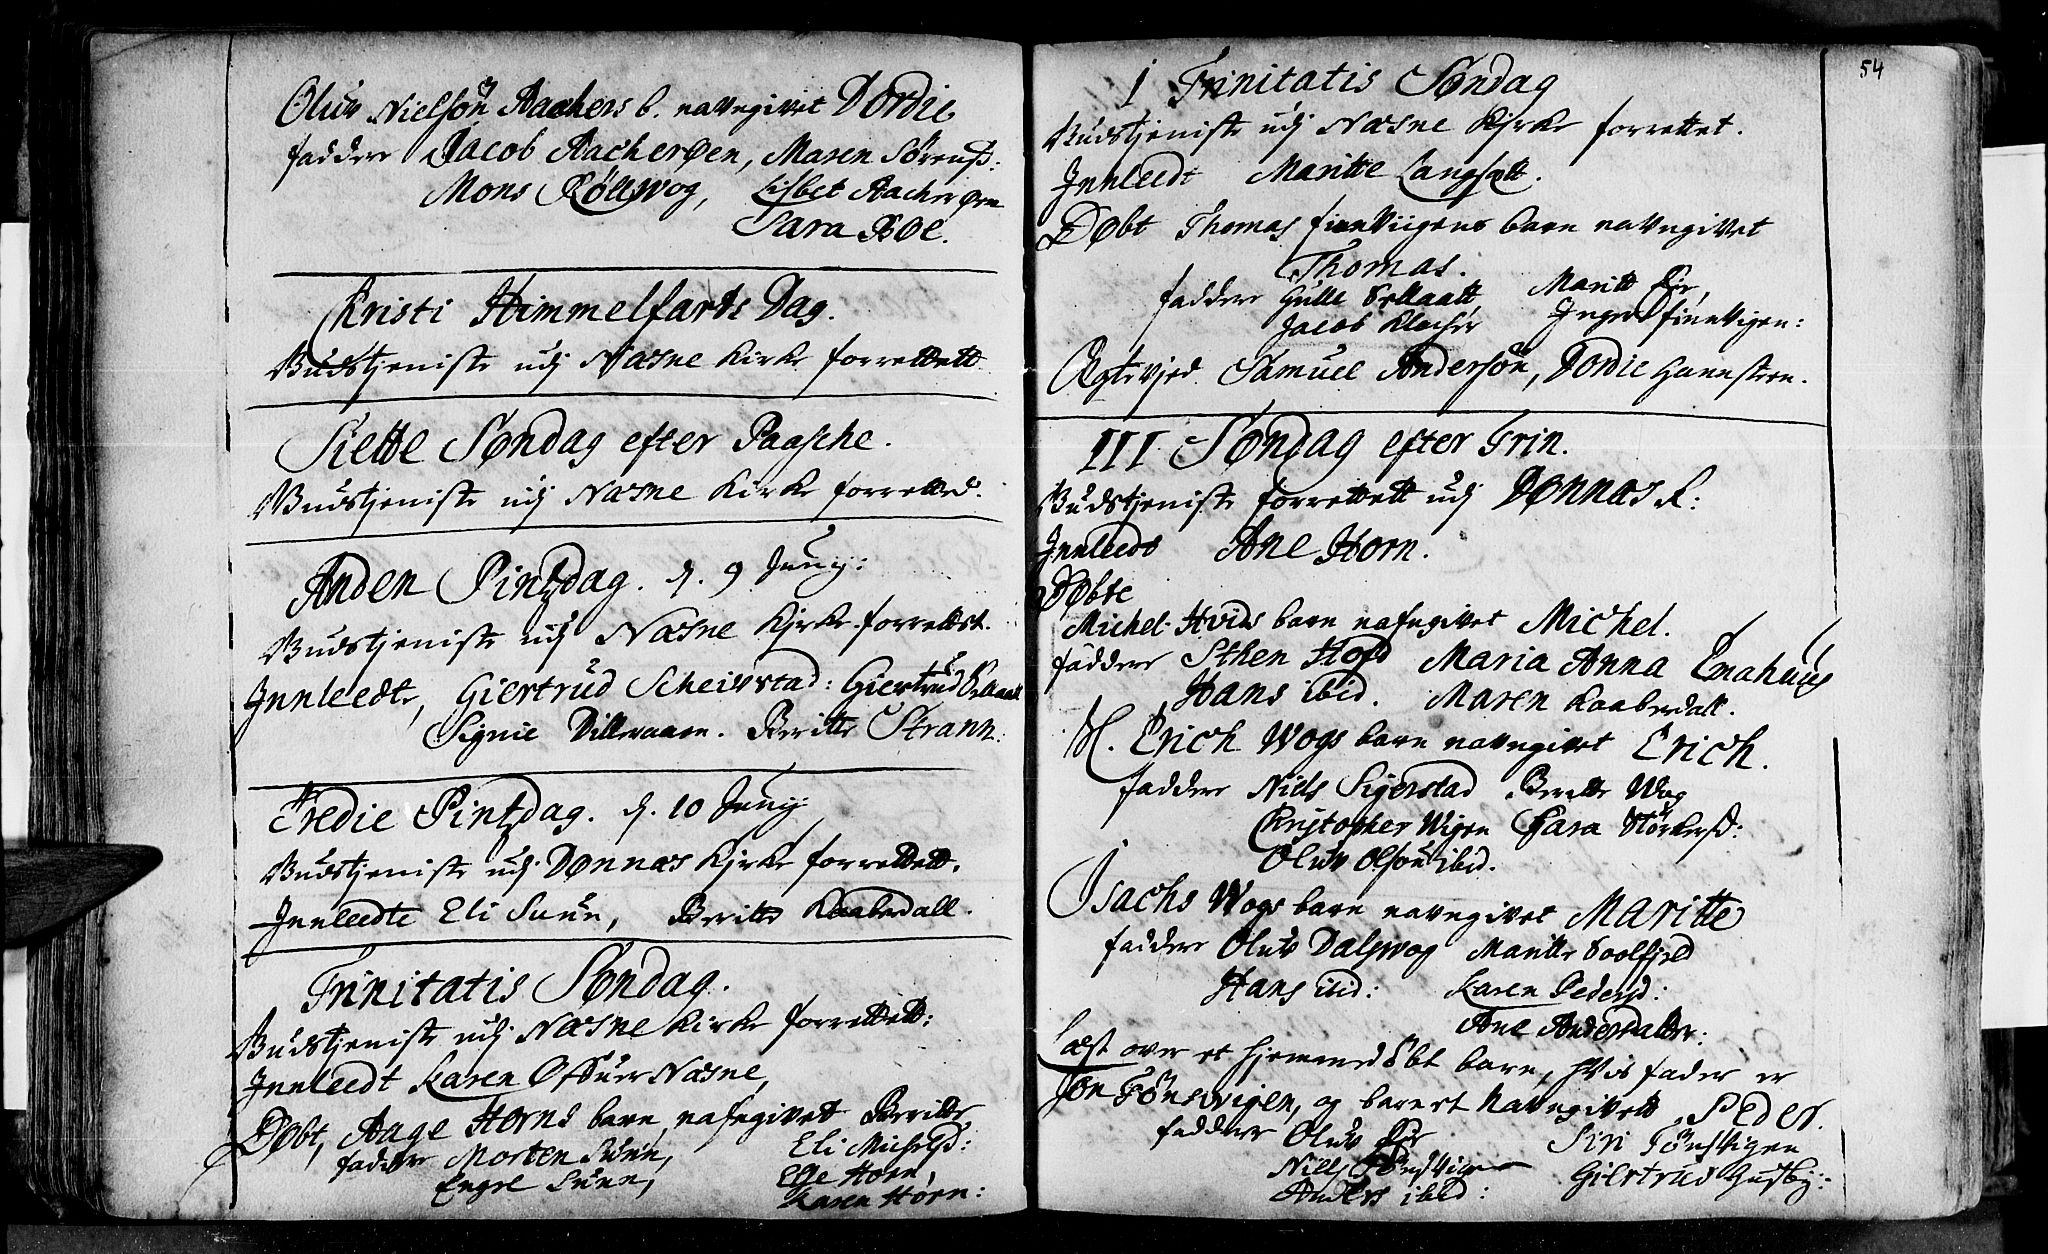 Oluv Nielsøn Aachers b. navngivet Dordie
faddere Jacob Aacherøen, Maren Sørensd:
Mons Røllswog, Lisbet Aacherøen
Sara Boe.
Christi Himmelfarts Dag.
Gudstjeniste udj Næsne Kirke forrettett
Siette Søndag efter Paasche.
Gudstjeniste udj Næsne Kirke forretted.
Anden Pintzdag. d. 9 Junij:
Gudstjeniste udj Næsne Kirke forrettet.
Innleedte, Giertrud Scheivstad: Giertrud
Signie Beritte Strann.
Tredie Pintzdag. d. 10 Junij
Gudstjeniste udj Dønnæs Kirke forrettett.
Innleedte Eli Suun, Beritte Kaabersdall.
Trinitatis Søndag.
Gudstjeniste udj Næsne Kirke forrettett:
Innleedt Karen Offuer Næsne,
Døbt, Aage Horns barn nafngivett Beritte
faddere Morten Suun, Eli Michelsd:
Engel Suun, Elje Horn,
Karen Horn:
54
I Trinitatis Søndag
Gudstjeniste udj Næsne Kirke forrettet.
Innleedt Maritte Langsett.
Døbt Thomas finnviigens barn navngivet
Thomas.
faddere Gulle Maritt
Jacob Klochr Inger finnvigen:
Ægteviet Samuel Andersøn, Dordie Hannstren.
III Søndag efter Trin.
Gudstjeniste forrettett udj Dønnæs K:
Innleedt Ane Horn.
Døbte
Michel Hvids barn nafngivet Michel.
faddere Sthen Hoff Maria Anna Enahuus
Hans ibid. Maren Kaabersdall.
H. Erich Wogs barn navngivet Erich.
faddere Niels Sigerstad Beritte Wog
Christopher Wigen Sara Størkersd:
Oluv Olsøn ibid.
Isachs Wogs barn navngivet Maritte
faddere Oluv Dalswog Maritte Soolfjeld
Hans ibid: Karen Pedersd:
Ane Andersdatter:
Læst over et hjemmedøbt barn, hvis fader er
Jon Tønsvigen, og barnet Navngivett Peder.
faddere Oluv Siri Tønsvigen
Niels Tønsvigen Giertrud Husby:
Anders ibid: